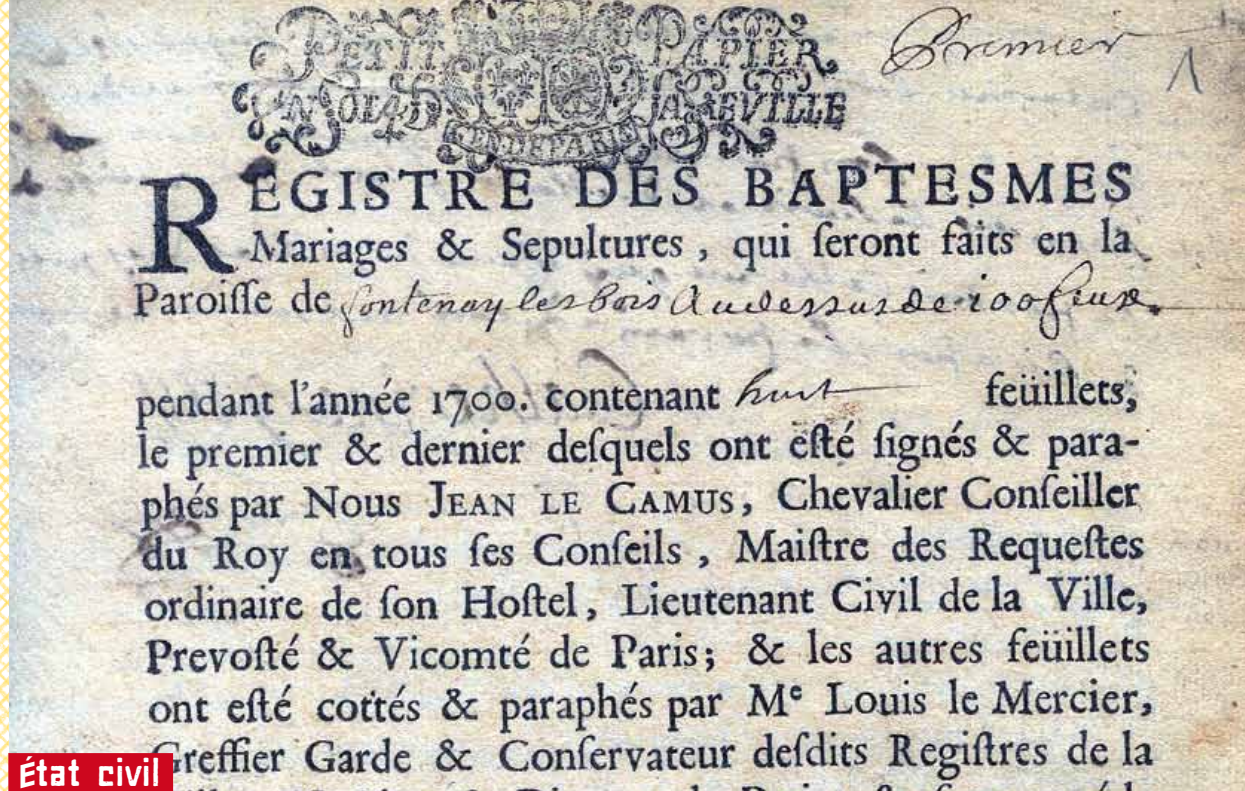 PETIT PAPIER
GEN DE PARIS
Premier
1
REGISTRE DES BAPTESMES
Mariages & Sepultures, qui ſeront faits en la
Paroiſſe de fontenay les bois Audessus de 100 feux.
pendant l'année 1700. contenant huit feüillets,
le premier & dernier deſquels ont eſté ſignés & para-
phés par Nous JEAN LE CAMUS, Chevalier Conſeiller
du Roy en tous ſes Conſeils, Maiſtre des Requeſtes
ordinaire de ſon Hoſtel, Lieutenant Civil de la Ville,
Prevoſté & Vicomté de Paris; & les autres feüillets
ont eſté cottés & paraphés par Me Louis le Mercier,
Greffier Garde & Conſervateur deſdits Regiſtres de la
État civil